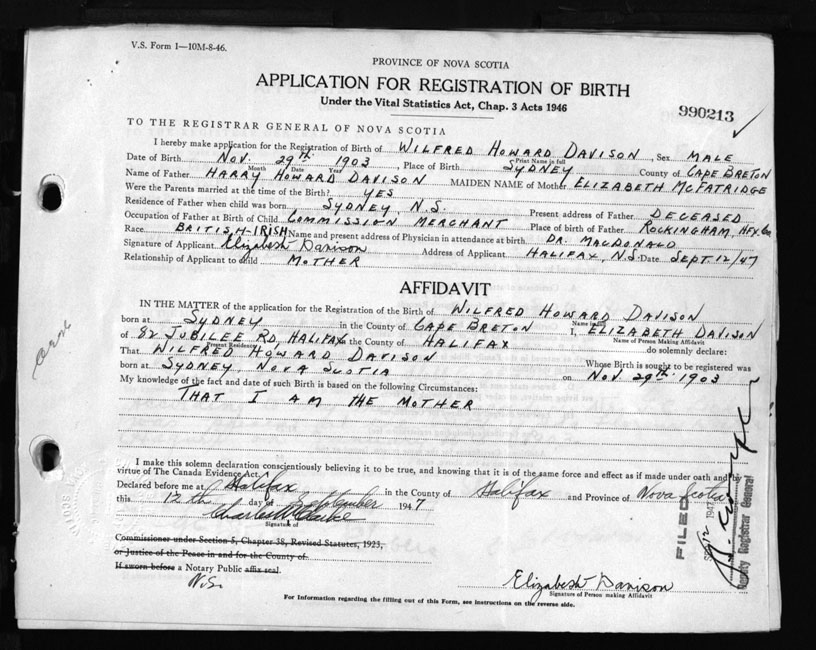 V.S. Form 1—10M-8-46.
PROVINCE OF NOVA SCOTIA
APPLICATION FOR REGISTRATION OF BIRTH
Under the Vital Statistics Act, Chap. 3 Acts 1946
990213
TO THE REGISTRAR GENERAL OF NOVA SCOTIA
I hereby make application for the Registration of Birth of WILFRED HOWARD DAVISON, Sex MALE
Print Name in full
Date of Birth NOV. 29th 1903, Place of Birth SYDNEY County of CAPE BRETON
Month Date Year
Name of Father HARRY HOWARD DAVISON MAIDEN NAME of Mother ELIZABETH McFATRIDGE
Were the Parents married at the time of the Birth? YES
Residence of Father when child was born SYDNEY N.S. Present address of Father DECEASED
Occupation of Father at Birth of Child COMMISSION MERCHANT Place of birth of Father ROCKINGHAM, HFX. Co.
Race BRITISH-IRISH Name and present address of Physician in attendance at birth DR. MACDONALD
Signature of Applicant Elizabeth Davison Address of Applicant HALIFAX, N.S. Date SEPT. 12/47
Relationship of Applicant to Child MOTHER
AFFIDAVIT
IN THE MATTER of the application for the Registration of the Birth of WILFRED HOWARD DAVISON
Name in full
born at SYDNEY in the County of CAPE BRETON I, ELIZABETH DAVISON
Name of Person Making Affidavit
of 82 JUBILEE RD, HALIFAX in the County of HALIFAX do solemnly declare:
Present Residence
That WILFRED HOWARD DAVISON Whose Birth is sought to be registered was
born at SYDNEY, NOVA SCOTIA on NOV. 29th 1903
My knowledge of the fact and date of such Birth is based on the following Circumstances:
THAT I AM THE MOTHER
I make this solemn declaration conscientiously believing it to be true, and knowing that it is of the same force and effect as if made under oath and by
virtue of The Canada Evidence Act.
Declared before me at Halifax in the County of Halifax and Province of Nova Scotia
this 12th day of September 1947
Signature of
Commissioner under Section 5, Chapter 38, Revised Statutes, 1923,
or Justice of the Peace in and for the County of
If sworn before a Notary Public affix seal.
N.S.
Elizabeth Davison
Signature of Person making Affidavit
For Information regarding the filling out of this Form, see instructions on the reverse side.
FILED
Deputy Registrar General